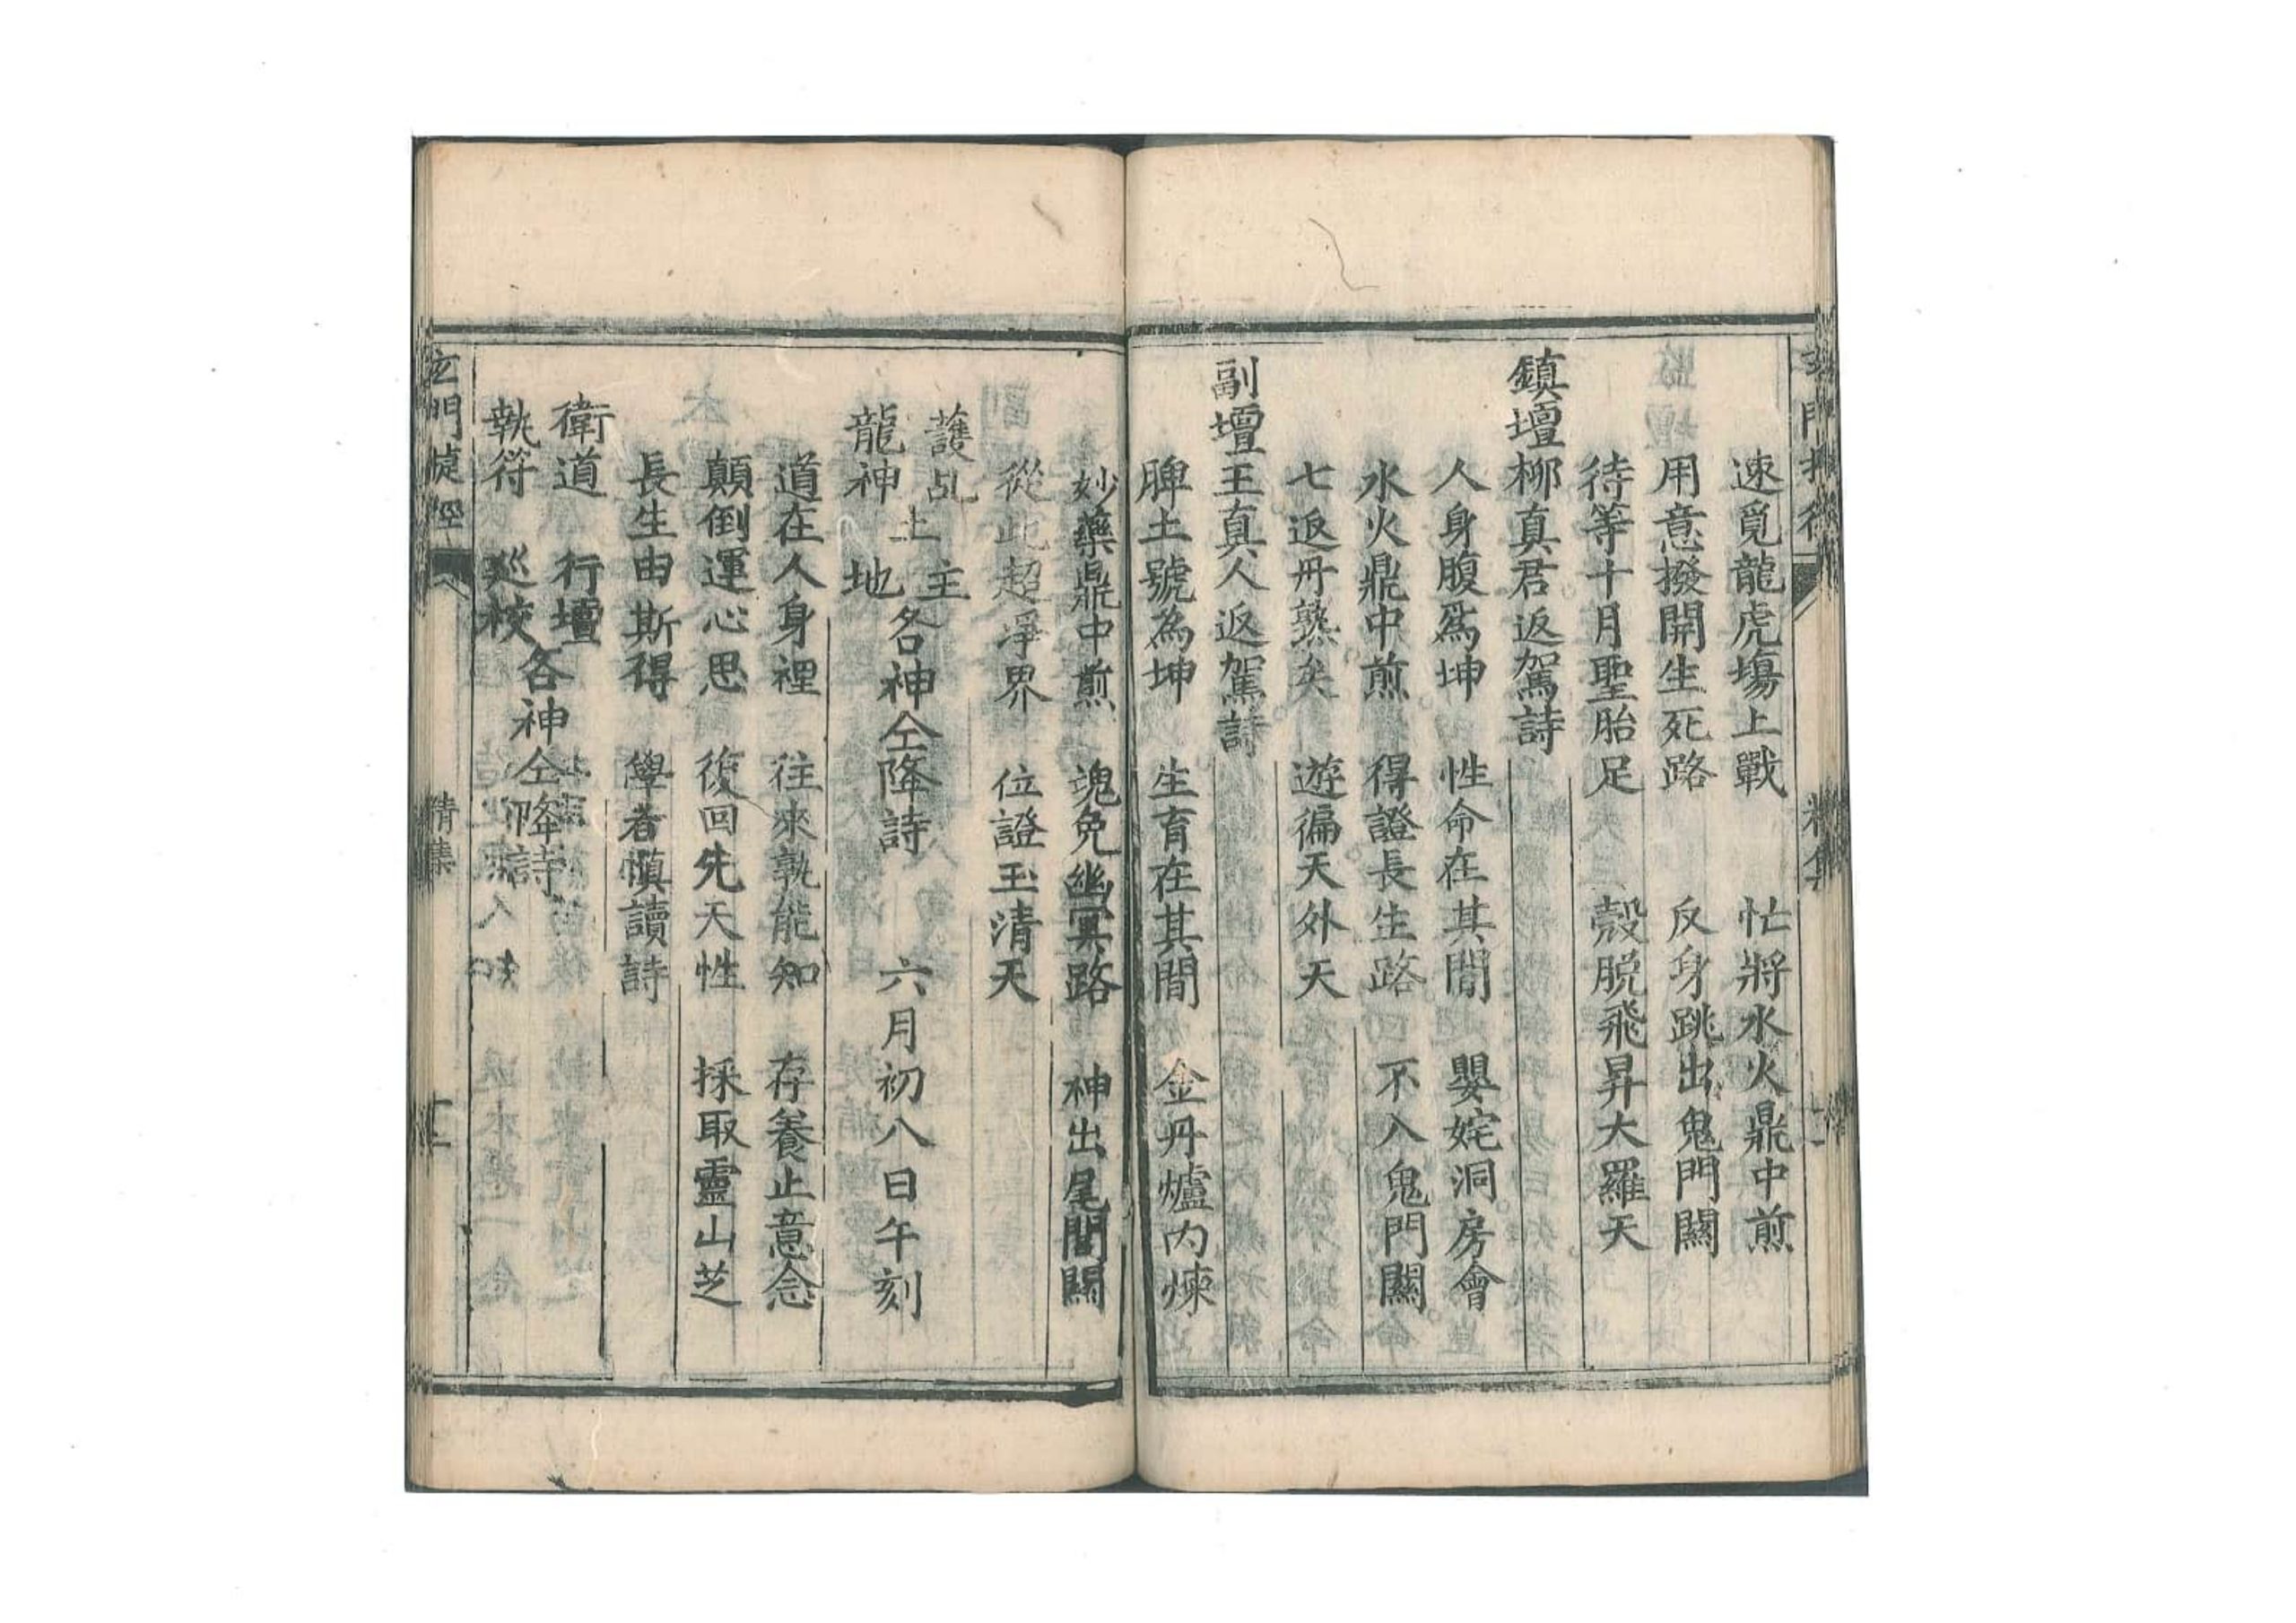 速覓龍虎塲上戰　忙將水火鼎中煎
用意撥開生死路　反身跳出鬼門關
待等十月聖胎足　殼脫飛昇大羅天
鎮壇柳真君返駕詩
人身腹爲坤　性命在其間　嬰姹洞房會
水火鼎中煎　得證長生路　不入鬼門關
七返丹熟矣　遊徧天外天
副壇王真人返駕詩
脾土號為坤　生育在其間　金丹爐內煉
妙藥鼎中煎　魂免幽冥路　神出尾閭關
從此超凈界　位證玉清天
護乩　土主
龍神　土地
各神仝降詩　六月初八日午刻
道在人身裡　往來孰能知　存養止意念
顛倒運心思　復回先天性　採取靈山芝
長生由斯得　學者慎讀詩
衛道　行壇
執符　巡校
各神仝降詩
玄門　集　十二